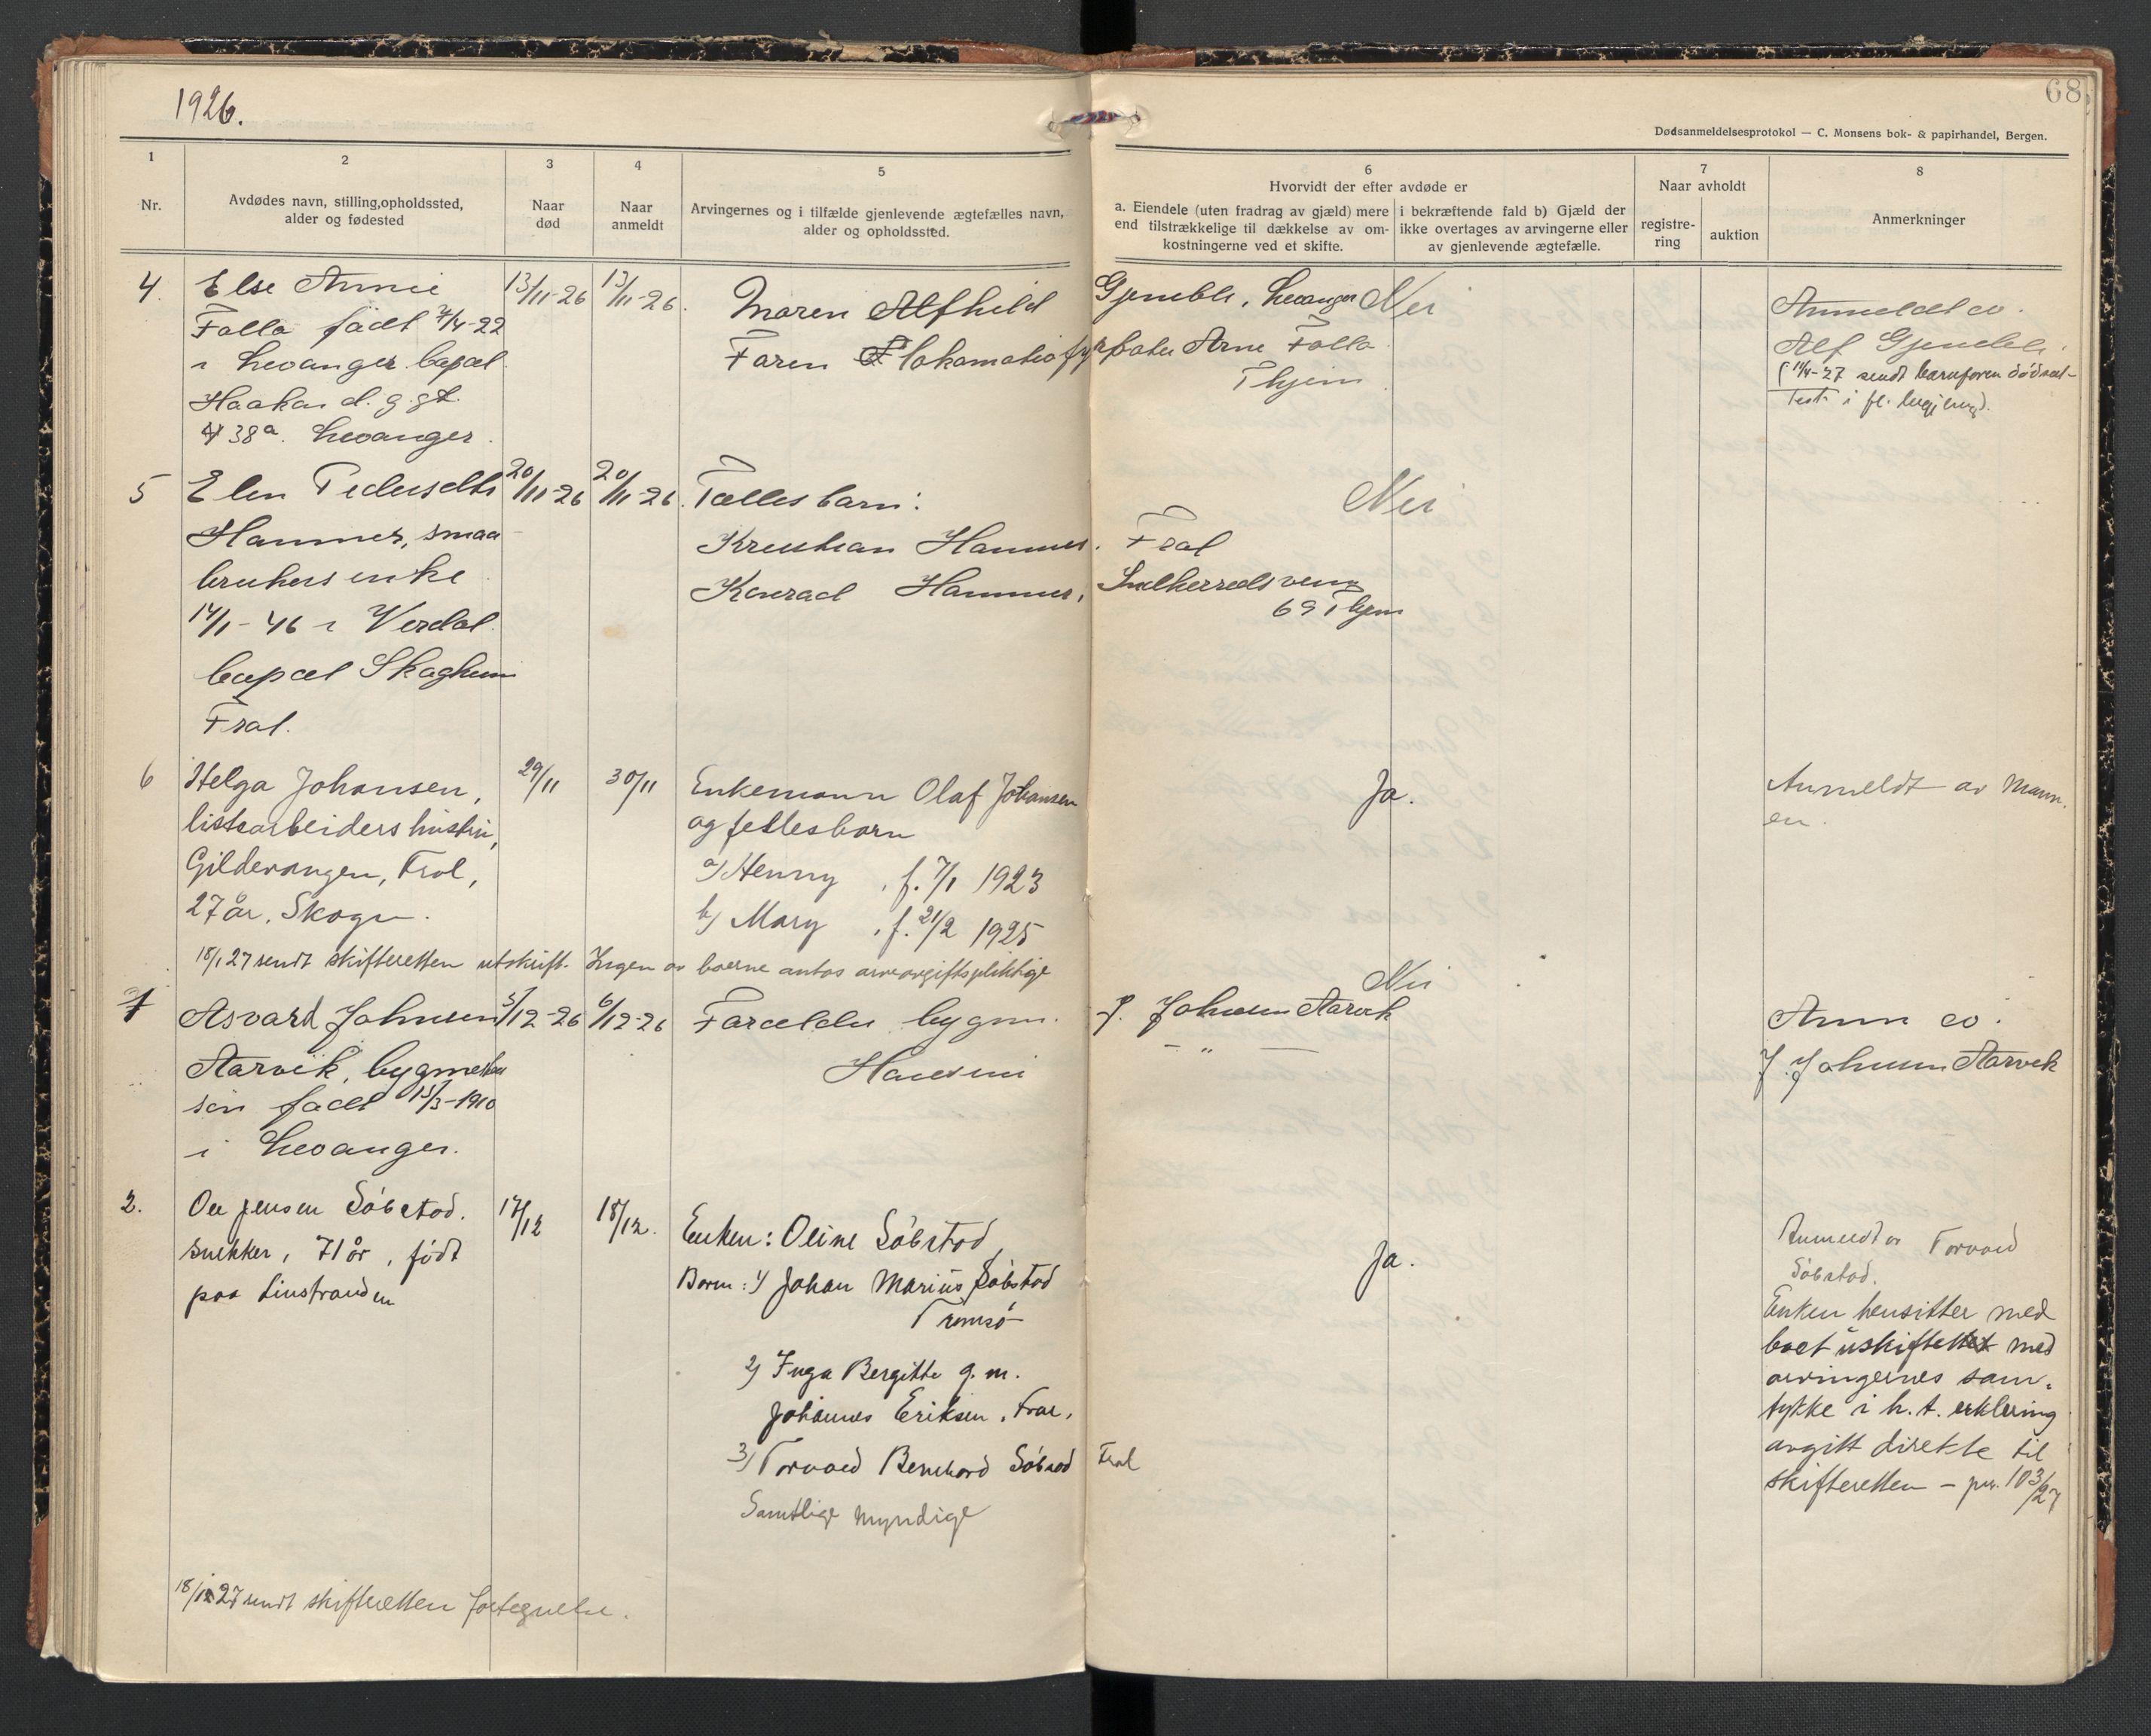 1926.
68
Dødsanmeldelsesprotokol — C. Monsens bok- & papirhandel, Bergen.
1
2
3
4
5
6
7
8
Nr.
Avdødes navn, stilling, opholdssted,
alder og fødested
Naar
død
Naar
anmeldt
Arvingernes og i tilfælde gjenlevende ægtefælles navn,
alder og opholdssted.
Hvorvidt der efter avdøde er
a. Eiendele (uten fradrag av gjæld) mere
end tilstrækkelige til dækkelse av om-
kostningerne ved et skifte.
i bekræftende fald b) Gjæld der
ikke overtages av arvingerne eller
av gjenlevende ægtefælle.
Naar avholdt
registre-
ring
auktion
Anmerkninger
4.
Else Annie
Falla født 7/4-22
i Levanger bopæl
Haakon d. g. gt.
38a. Levanger.
13/11-26
13/11-26.
Moren Alfhild Gjemble, Levanger
Faren lokomotivfyrbøter Arne Falla
Thjem.
Nei
Anmeldt av.
Alf Gjemble.
(11/4-27 sendt barnfaren dødsat-
test i fl. begjering).
5
Elen Pedersdtr
Hammer, smaa
brukers enke
14/1-46 i Verdal
bopæl
Frol.
20/11-26
20/11-26.
Fællesbarn:
Kristian Hammer. Frol
Konrad Hammer, Indherredsveng
69 Thjem
Nei
6
Helga Johansen,
listearbeiders hustru,
Gildevangen, Frol,
27 år, Skogn.
29/11
30/11
Enkemann Olaf Johansen
og fellesbarn
a) Henny, f. 7/1 1923
b) Mary, f. 21/2 1925
Ja.
Anmeldt av Mann-
en.
18/1 27 sendt skifteretten utskrift. Ingen av boerne antas arveavgiftspliktige
7
Asvard Johnsen
Aarvik, bygmester
søn født 15/3-1910
i Levanger.
5/12-26
6/12-26
Forældre bygm. J. Johnsen Aarvik
Hansine — " —
Nei
Anm av.
J. Johnsen Aarvik
2.
Ole Jensen Söbstad.
snekker, 71 år, født
paa Leinstranden
17/12
18/12.
Enken: Oline Söbstad,
Barn: 1) Johan Marius Söbstad
Tromsö
2) Inga Bergitte g. m.
Johannes Eriksen, Frol,
3) Torvald Bernhard Söbstad Frol
Samtlige myndige
Ja.
Anmeldt av Torvald
Söbstad.
Enken hensitter med
boet uskiftet med
arvingernes sam-
tykke i h. t. erklæring
avgitt direkte til
skifteretten – jnr. 103/27
18/1 27 sendt skifteretten fortegnelse.